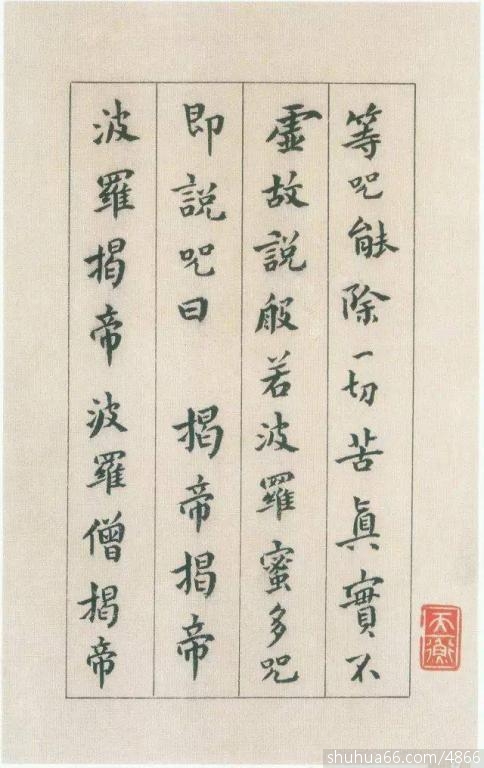 等咒能除一切苦真實不
虛故說般若波羅蜜多咒
即說咒曰　揭帝揭帝
波羅揭帝波羅僧揭帝
天衡
shuhua66.com/4866